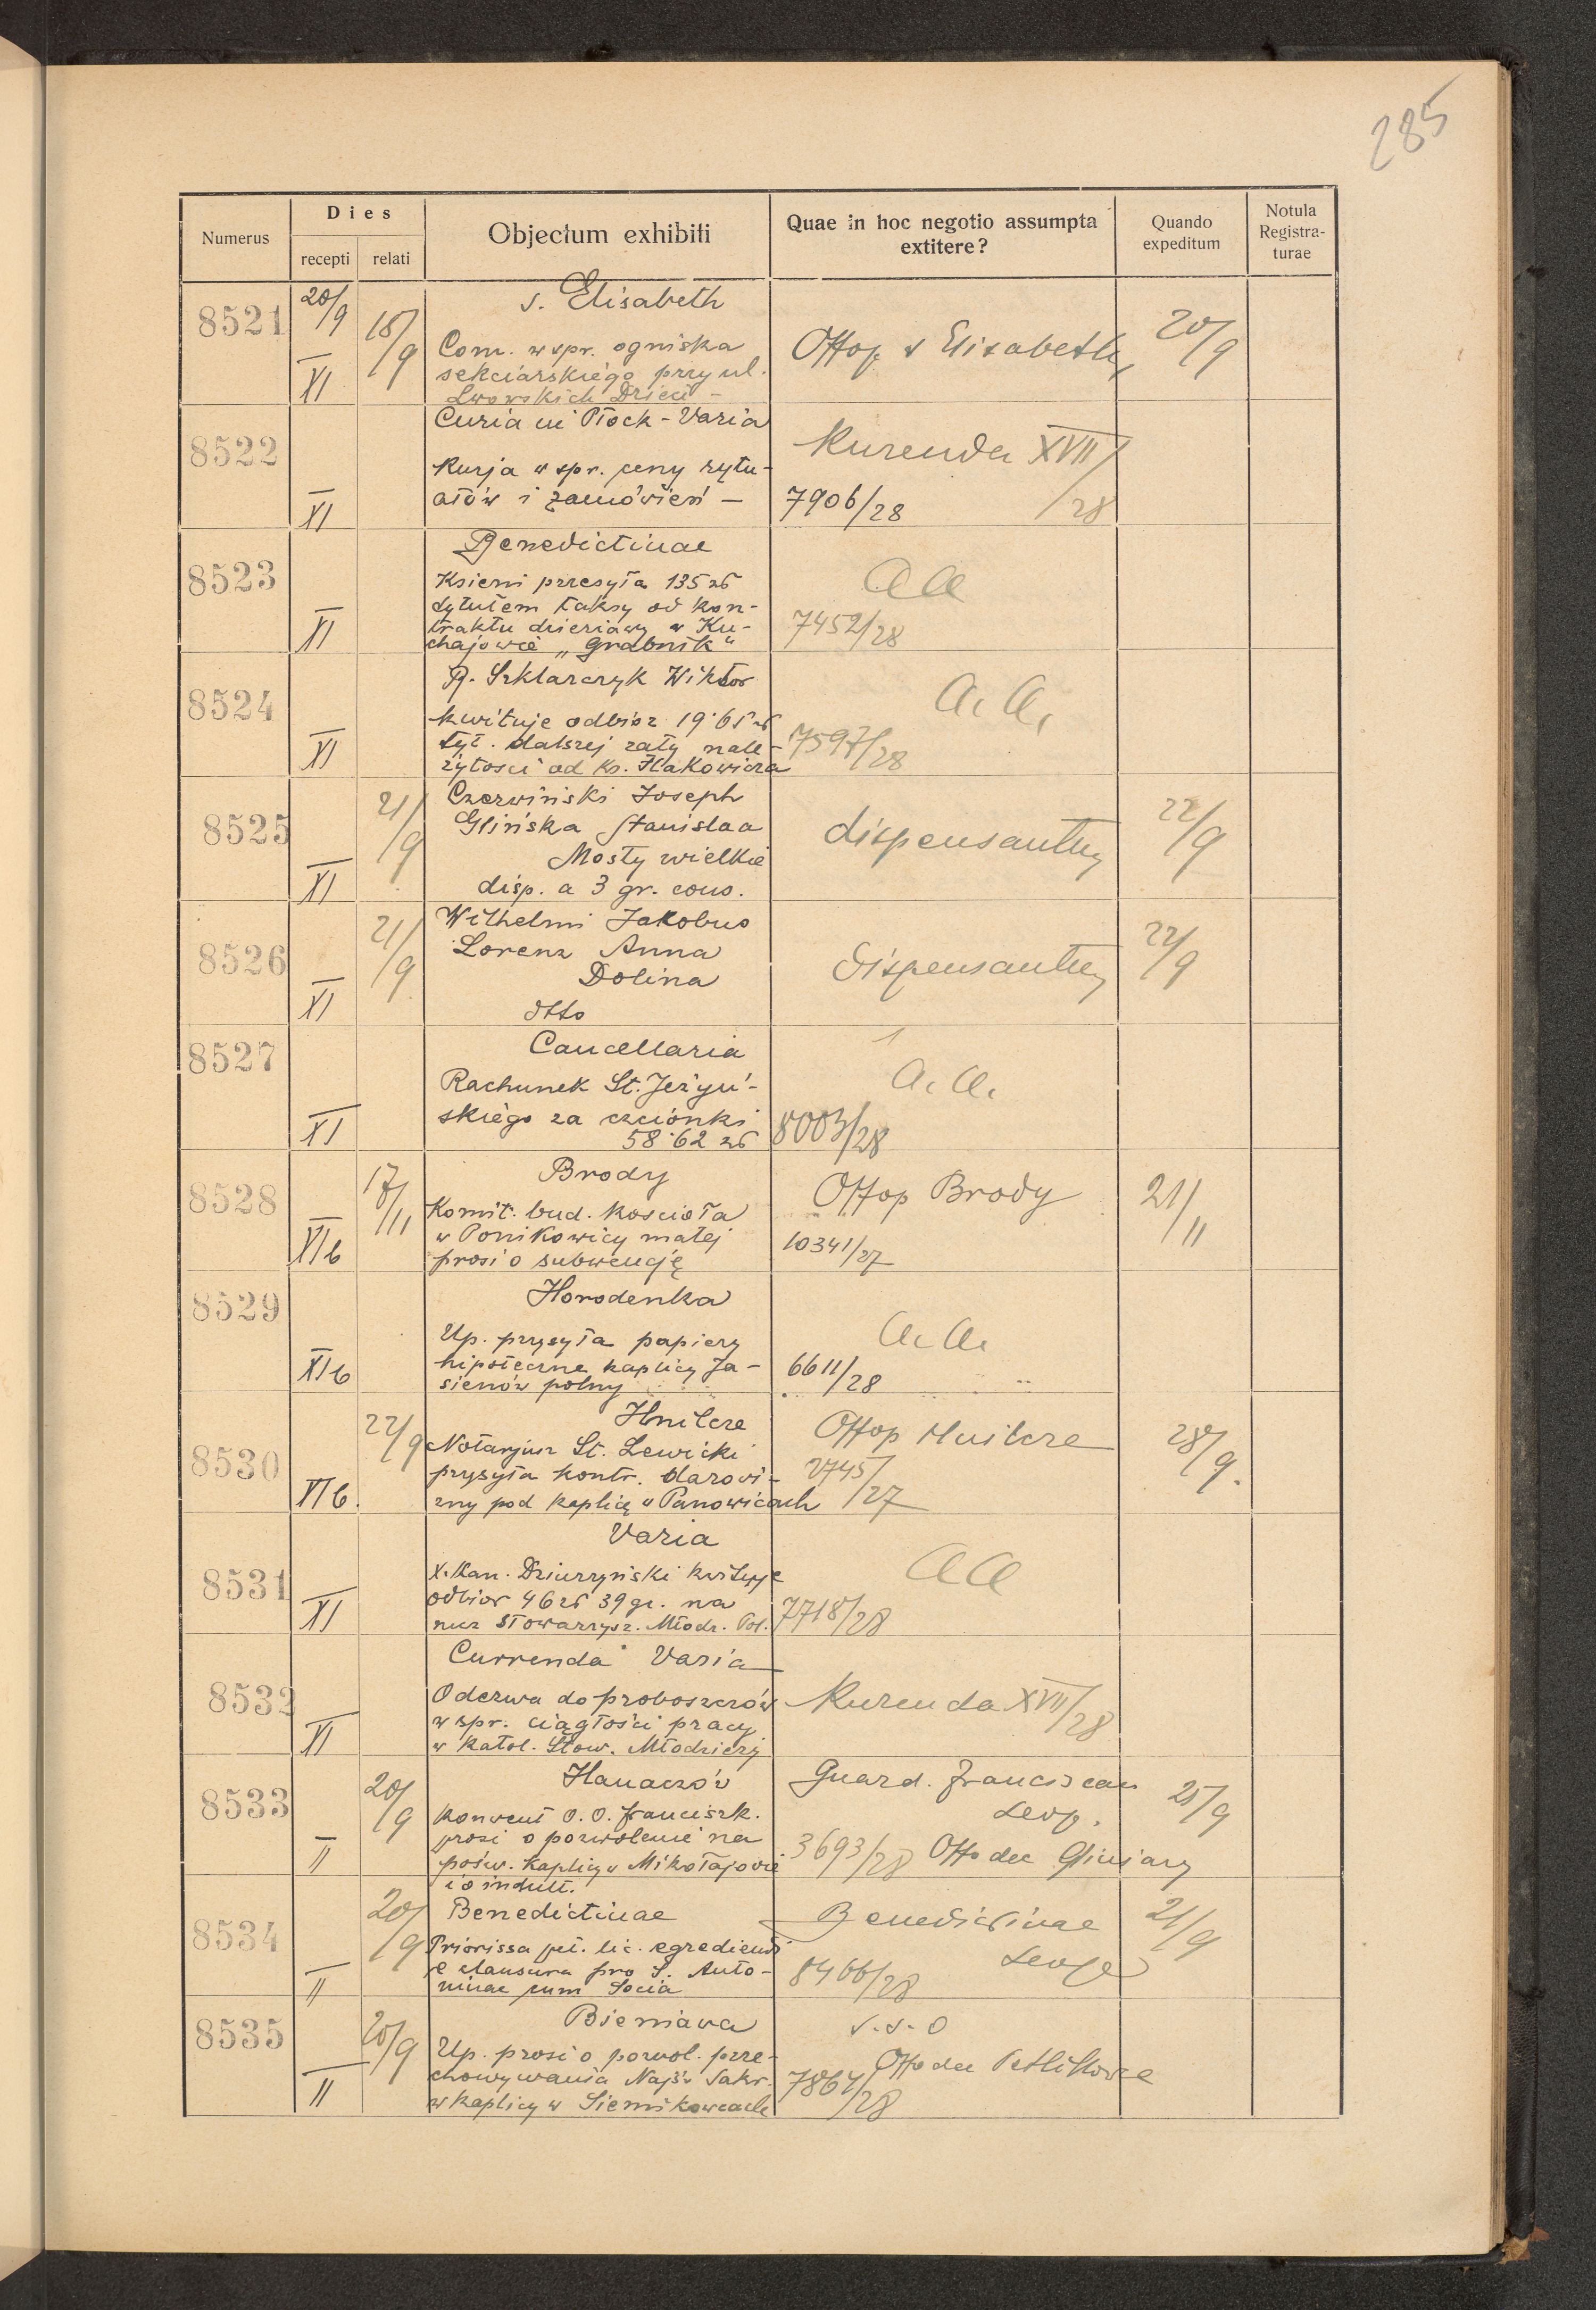 285
Numerus
Dies
recepti
relati
Objectum exhibiti
Quae in hoc negotio assumpta
extitere?
Quando
expeditum
Notula
Registra-
turae
8521
20/9
XI
18/9
s. Elisabeth
Com. w spr. ogniska
sekciarskiego przy ul.
Lwowskich Dzieci -
Offop. s Elisabeth
20/9
8522
XI
Curia in Płock - Varia
Kurja w spr. ceny rytu-
ałów i zamówień -
Kurenda XVII/28
7906/28
8523
XI
Benedictinae
Ksieni przesyła 135 zł
tytułem taksy od kon-
traktu dzierżawy w Ku-
hajowie „Grabnik"
aa
7452/28
8524
XI
R. Szklarczyk Wiktor
kwituje odbiór 19·65 zł
tyt. dalszej raty nale-
żytości od ks. Hakowicza
a. a.
7597/28
8525
XI
21/9
Czerwiński Joseph
Glińska Stanislaa
Mosty wielkie
disp. a 3 gr. cons.
dispensantur
22/9
8526
XI
21/9
Wilhelmi Jakobus
Lorenz Anna
Dolina
dtto
dispensantur
22/9
8527
XI
Cancellaria
Rachunek St. Jeżyń-
skiego za czcionki
58·62 zł
a. a.
8003/28
8528
XIb
17/11
Brody
Komit. bud. kościoła
w Ponikowicy małej
prosi o subwencję
Offop Brody
10341/27
21/11
8529
XIb
Horodenka
Up. przysyła papiery
hipoteczne kaplicy Ja-
sienów polny
a. a.
6611/28
8530
XIb.
22/9
Hnilcze
Notarjusz St. Lewicki
przysyła kontr. darowi-
zny pod kaplicę w Panowicach
Offop Hnilcze
2745/27
28/9.
8531
XI
Varia
X. Kan. Dziurzyński kwituje
odbiór 46 zł 39 gr. na
rzcz Stowarzysz. Młodz. Pol.
aa
7718/28
8532
XI
Currenda Varia
Odezwa do proboszczów
w spr. ciągłości pracy
w Katol. Stow. Młodzieży
Kurenda XVII/28
8533
II
20/9
Hanaczów
Konwent O.O. Franciszk.
prosi o pozwolenie na
pośw. kaplicy w Mikołajowie
i o indult.
Guard. Franciscan
Leop.
3693/28 Offo dec Gliniany
25/9
8534
II
20/9
Benedictinae
Priorissa pet. lic. egrediendi
e clausura pro S. Anto-
ninae cum Socia
Benedictinae
Leop
8466/28
21/9
8535
II
20/9
Bieniawa
Up. prosi o pozwol. prze-
chowywania Najśw Sakr.
w kaplicy w Siemikowcach
v.s.o
Offo dec Petlikowce
7864/28